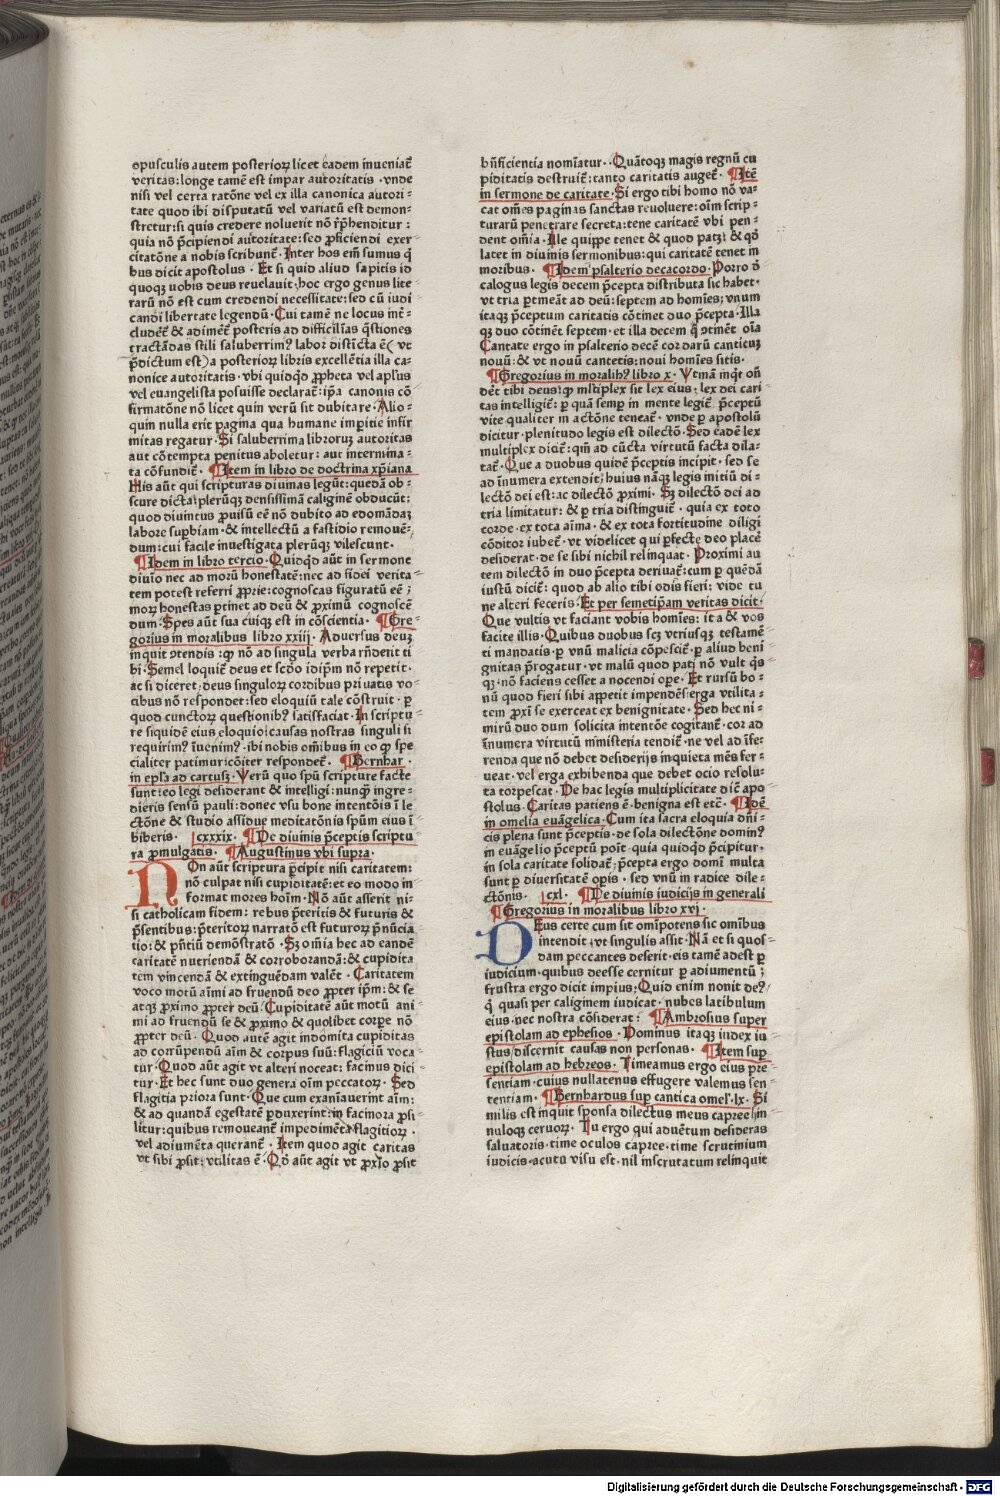 opusculis autem posteriorꝝ licet eadem inueniat᷑
veritas: longe tamē est impar autoritatis · vnde
nisi vel certa ratōne vel ex illa canonica autori-
tate quod ibi disputatū vel variatū est demon-
stretur: si quis credere noluerit nō rep̄henditur:
quia nō p̄cipiendi autoritate: sed ꝓficiendi exer-
citatōne a nobis scribunt᷑ · Inter hos em̄ sumus q̄
bus dicit apostolus · Et si quid aliud sapitis id
quoqꝫ uobis deus reuelauit, hoc ergo genus lite
rarū nō est cum credendi necessitate: sed cū iudi
candi libertate legendū · Cui tamē ne locus int᷑-
cludet᷑ & adimet᷑ posteris ad difficilias q̄stiones
tractādas stili saluberrim⁹ labor distīcta ē (vt
p̄dictum est) a posteriorꝝ libris excellētia illa ca-
nonice autoritatis · vbi quidqd̄ ꝓpheta vel apl'us
vel euangelista posuisse declarat᷑: ip̄a canonis cō
firmatōne nō licet quin verū sit dubitare · Alio-
quin nulla erit pagina qua humane impitie infir
mitas regatur · Si saluberrima librorꝝ autoritas
aut cōtempta penitus aboletur: aut intermina-
ta cōfundit᷑ · ¶Item in libro de doctrina xp̄iana
His aūt qui scripturas diuinas legūt: quedā ob-
scure dicta: plerūqꝫ densissimā caliginē obducūt:
quod diuinitus ꝓuisū eē nō dubito ad edomādaꝫ
labore sup̄biam · & intellectū a fastidio remouē-
dum: cui facile inuestigata plerūqꝫ vilescunt ·
¶Idem in libro tercio · Quidqd̄ aūt in sermone
diuīo nec ad morū honestatē: nec ad fidei verita-
tem potest referri ꝓprie: cognoscas figuratū eē;
morꝝ honestas ꝑtinet ad deū & ꝓximū cognoscē
dum · Spes aūt sua cuiqꝫ est in cōscientia · ¶Gre-
gorius in moralibus libro xxiij · Aduersus deuꝫ
inquit ꝯtendis: qꝫ nō ad singula verba rn̄derit ti
bi · Semel loquit᷑ deus et scdo idip̄m nō repetit ·
ac si diceret, deus singulorꝝ cordibus priuatis vo-
cibus nō respondet: sed eloquiū tale cōstruit · ꝑ
quod cunctorꝝ questionibꝫ satisfaciat · In scriptu-
re siquidē eius eloquio: causas nostras singuli si
requirim⁹ īuenim⁹ · ibi nobis om̄ibus in eo qꝫ spe
cialiter patimur: cōiter respondet᷑ · ¶Bernhar ·
in ep̄la ad cartusꝫ · Verū quo spū scripture facte
sunt: eo legi desiderant & intelligi: nunqꝫ ingre-
dieris sensū pauli: donec vsu bone intentōis ī le
ctōne & studio assidue meditatōnis spūm eius ī
biberis · |cxxxix · ¶De diuinis p̄ceptis scriptu-
ra ꝓmulgatis · ¶Augustinus vbi supra ·
NOn aūt scriptura p̄cipit nisi caritatem:
nō culpat nisi cupiditatē: et eo modo in
format mores hoīm · Nō aūt asserit ni-
si catholicam fidem: rebus p̄teritis & futuris &
p̄sentibus: p̄teritorꝝ narratō est futurorꝝ p̄nūcia
tio: & p̄ntiū demōstratō · Sꝫ om̄ia hec ad eandē
caritatē nutriendā & corroborandā: & cupidita
tem vincendā & extinguēdam valēt · Caritatem
voco motū aīmi ad fruendū deo ꝓpter ip̄m: & se
atqꝫ ꝓximo ꝓpter deū: Cupiditatē aūt motū ani-
mi ad fruendū se & ꝓximo & quolibet corpe nō
ꝓpter deū · Quod autē agit indomita cupiditas
ad corrūpendū aīm & corpus suū: flagiciū voca
tur · Quod aūt agit vt alteri noceat: facimus dici-
tur · Et hec sunt duo genera oīm peccatorꝝ · Sed
flagitia priora sunt · Que cum exaniauerint aīm:
& ad quandā egestatē ꝑduxerint: in facinora ꝓsi-
litur: quibus remoueant᷑ impedimēta flagitiorꝝ ·
vel adiumēta querant᷑ · Item quod agit caritas
vt sibi ꝓsit: vtilitas ē · Qd̄ aūt agit vt ꝓxīo ꝓsit
bn̄ficientia nomīatur · Quātoqꝫ magis regnū cu
piditatis destruit᷑: tanto caritatis auget᷑ · ¶Itē
in sermone de caritate · Si ergo tibi homo nō va-
cat om̄es paginas sanctas reuoluere: oīm scrip-
turarū penetrare secreta: tene caritatē vbi pen-
dent om̄ia · Ille quippe tenet & quod patꝫ: & qd̄
latet in diuinis sermonibus: qui caritatē tenet in
moribus · ¶Idem psalterio decacordo · Porro d̄
calogus legis decem p̄cepta distributa sic habet ·
vt tria ꝑtineāt ad deū: septem ad homīes; vnum
itaqꝫ p̄ceptum caritatis cōtinet duo p̄cepta · Illa
qꝫ duo cōtinēt septem · et illa decem q̄ ꝯtinēt oīa
Cantate ergo in psalterio decē cordarū canticuꝫ
nouū: & vt nouū cantetis: noui homīes sitis ·
¶Gregorius in moralibꝫ libro x · Vtinā inqͥt on̄
det᷑ tibi deus: qꝫ mltiplex sit lex eius; lex dei cari
tas intelligit᷑: ꝑ quā semꝑ in mente legit᷑ p̄ceptū
vite qualiter in actōne teneat᷑ · vnde ꝑ apostolū
dicitur · plenitudo legis est dilectō · Sed eadē lex
multiplex dicit᷑: qm̄ ad cūcta virtutū facta dila-
tat᷑ · Que a duobus quidē p̄ceptis incipit · sed se
ad īnumera extendit; huius nāqꝫ legis mitiū di-
lectō dei est: ac dilectō ꝓximi · Sꝫ dilectō dei ad
tria limitatur: & ꝑ tria distinguit᷑ · quia ex toto
corde · ex tota aīma · & ex tota fortitudine diligi
cōditor iubet᷑ · vt videlicet qui ꝑfecte deo placē
desiderat · de se sibi nichil relinquat · Proximi au
tem dilectō in duo p̄cepta deriuat᷑: cum ꝑ quēdā
iustū dicit᷑: quod ab alio tibi odis fieri: vide tu
ne alteri feceris · Et per semetip̄am veritas dicit ·
Que vultis vt faciant vobis homīes: ita & vos
facite illis · Quibus duobus scꝫ vtriusqꝫ testamē
ti mandatis · ꝑ vnū malicia cōpescit᷑ · ꝑ aliud beni
gnitas p̄rogatur · vt malū quod pati nō vult qͥs
qꝫ · nō faciens cesset a nocendi ope · Et rursū bo-
nū quod fieri sibi appetit impendēs: erga vtilita-
tem ꝓxī se exerceat ex benignitate · Sed hec ni-
mirū duo dum solicita intentōe cogitant᷑ · cor ad
īnumera virtutū ministeria tendit᷑ · ne vel ad īfe-
renda que nō debet desiderijs inquieta mēs fer-
ueat · vel erga exhibenda que debet ocio resolu-
ta torpescat · De hac legis multiplicitate dic̄ apo
stolus · Caritas patiens ē · benigna est etc̄ · ¶Idē
in omelia euāgelica · Cum ita sacra eloquia dn̄i-
cis plena sunt p̄ceptis · de sola dilectōne domin⁹
in euāgelio p̄ceptū poīt · quia quidqd̄ p̄cipitur ·
in sola caritate solidat᷑; p̄cepta ergo domī multa
sunt ꝑ diuersitatē opis · sed vnū in radice dile-
ctōnis · |cxl · ¶De diuinis iudicijs in generali
¶Gregorius in moralibus libro xvi ·
DEus certe cum sit omīpotens sic omībus
intendit, vt singulis assit · Nā et si quos-
dam peccantes deserit · eis tamē adest ꝑ
iudicium · quibus deesse cernitur ꝑ adiumentū;
frustra ergo dicit impius; Quid enim nouit de⁹?
q̄ quasi per caliginem iudicat · nubes latibulum
eius · nec nostra cōsiderat: ¶Ambrosius super
epistolam ad ephesios · Dominus itaqꝫ iudex iu
stus, discernit causas non personas · ¶Item suꝑ
epistolam ad hebreos · Timeamus ergo eius pre-
sentiam · cuius nullatenus effugere valemus sen
tentiam · ¶Bernhardus suꝑ cantica omel' lx · Si
milis est inquit sponsa dilectus meus capree hin
nuloqꝫ ceruorꝝ · Tu ergo qui aduētum desideras
saluatoris · time oculos capree · time scrutinium
iudicis · acuto visu est · nil inscrutatum relinquit
Digitalisierung gefördert durch die Deutsche Forschungsgemeinschaft - DFG